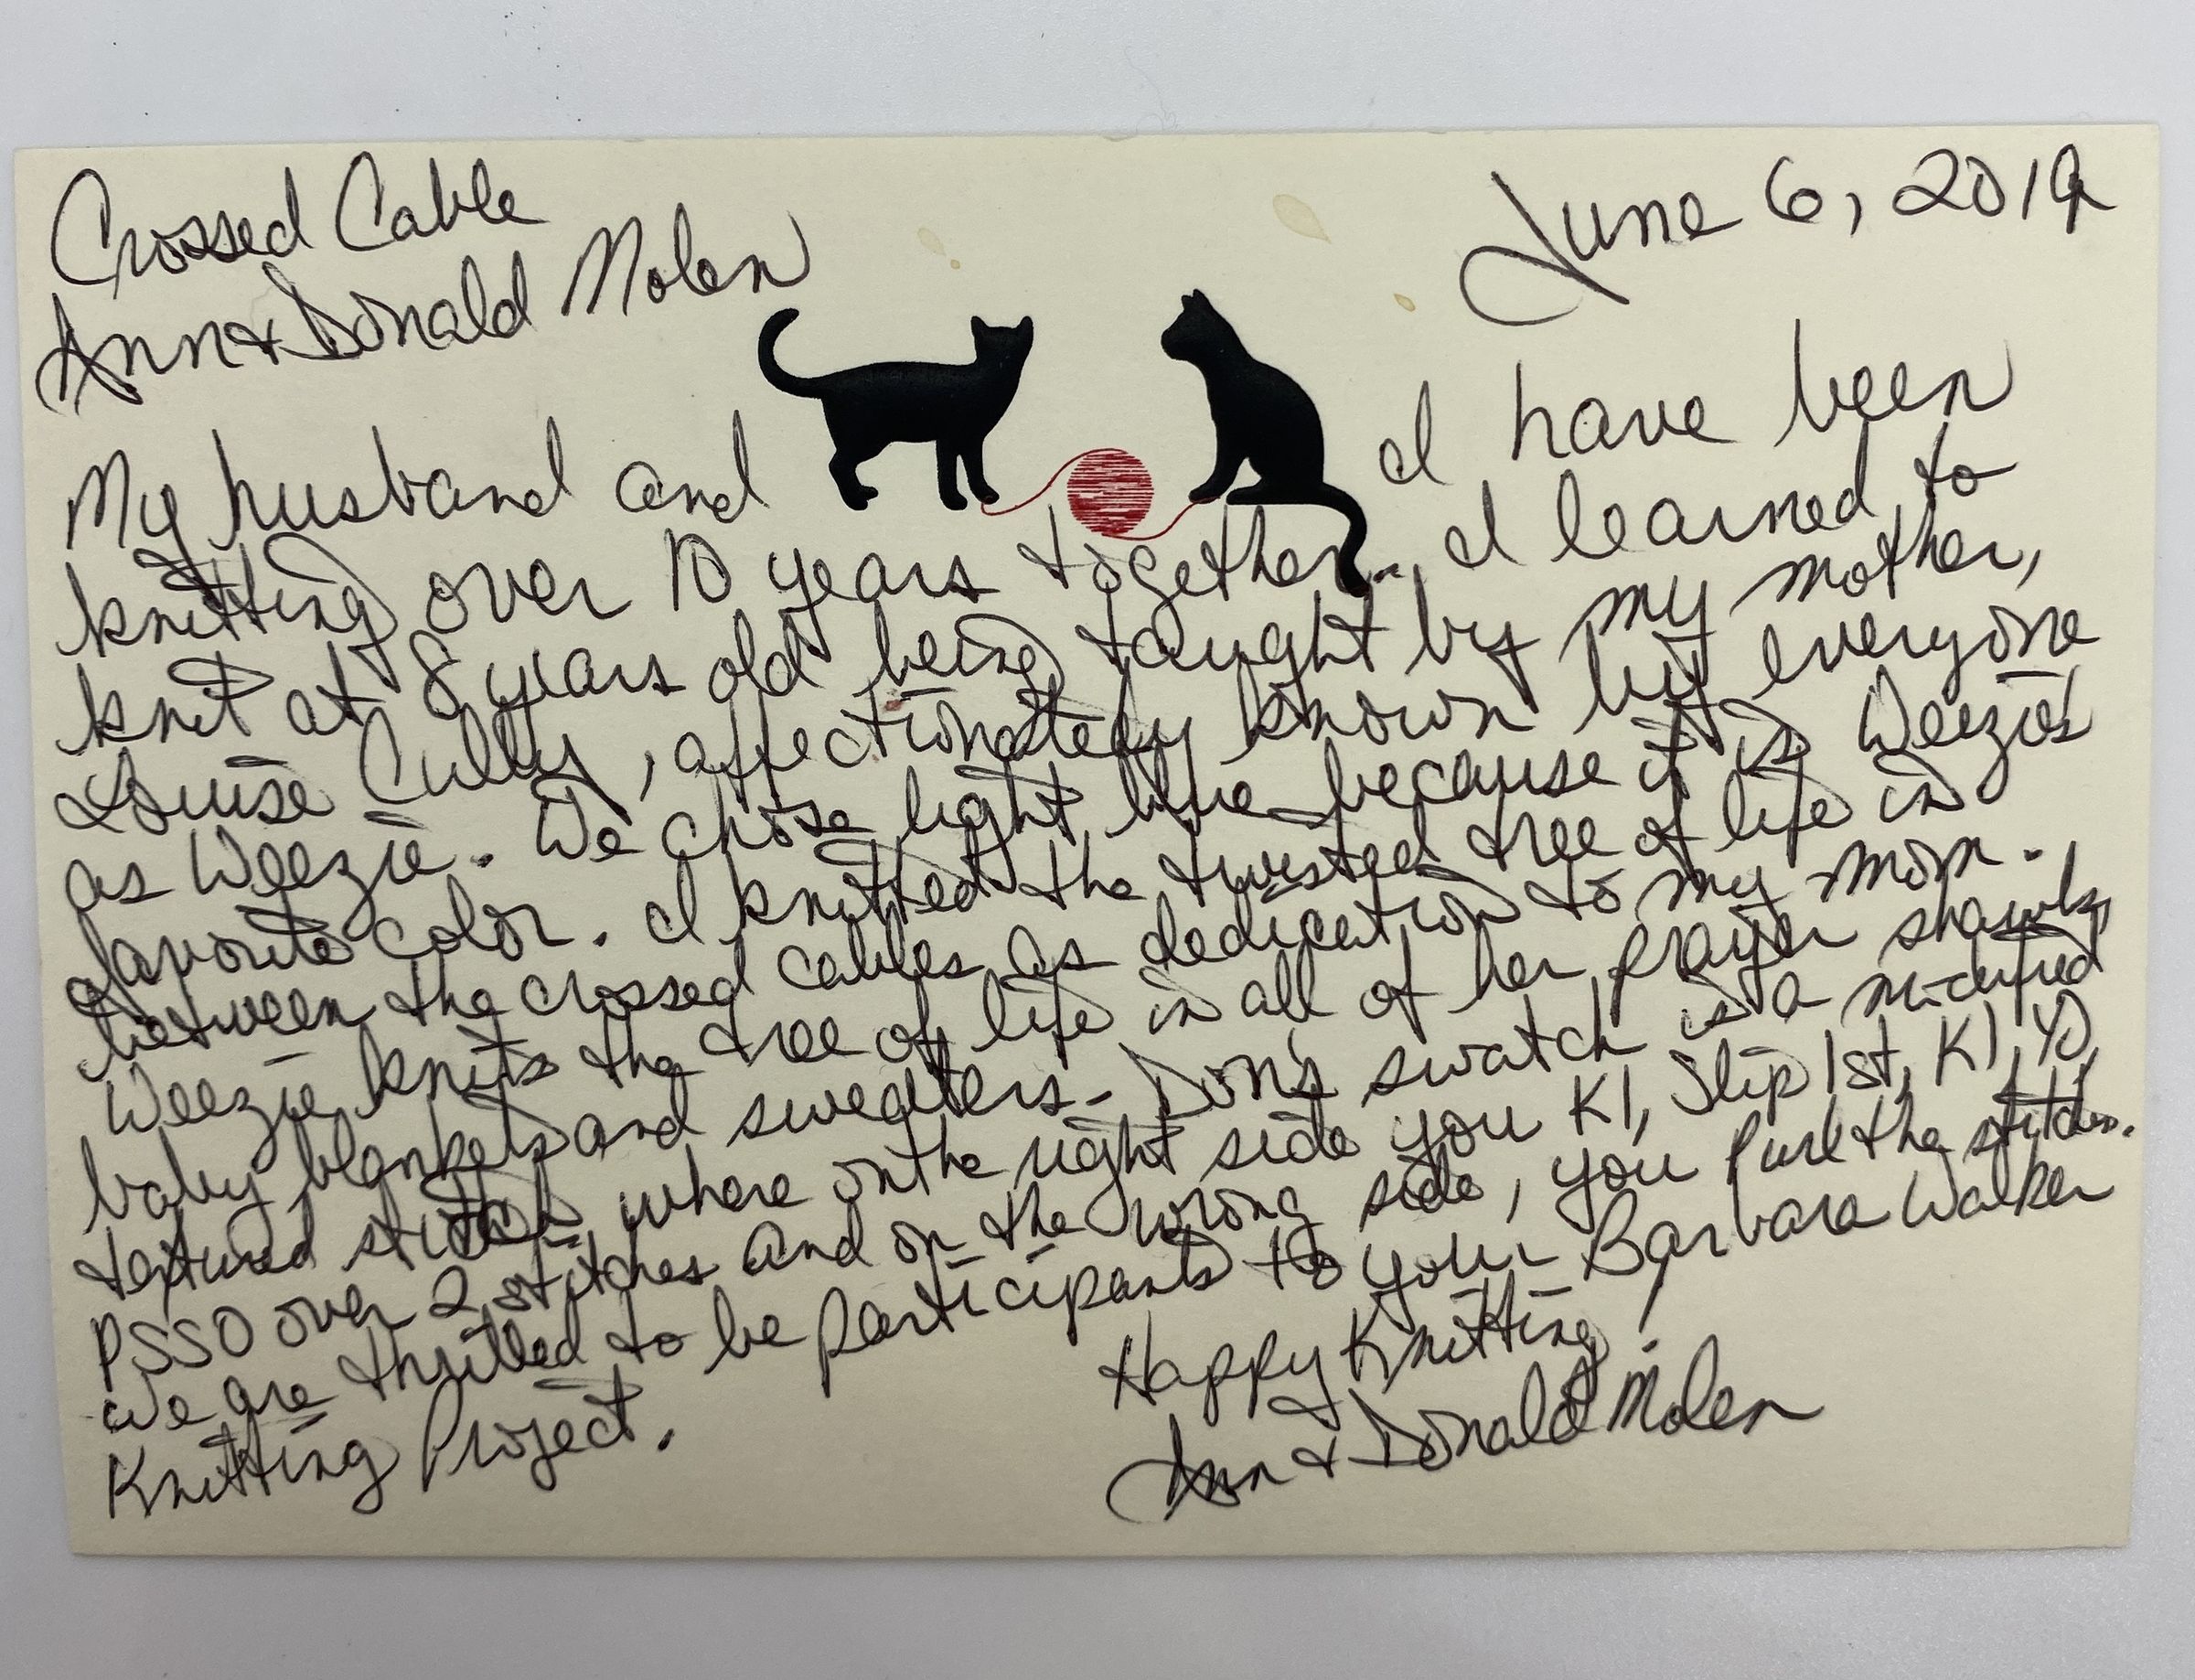 Crossed Cable
Ann & Donald Molen
June 6, 2019
My husband and I have been
knitting over 10 years together. I learned to
knit at 8 years old being taught by my mother,
Louise Cully, affectionately known by everyone
as Weezie. We chose light blue because it is Weezie's
favorite color. I knitted the twisted tree of life in
between the crossed cables as dedication to my mom.
Weezie knits the tree of life in all of her prayer shawls,
baby blankets and sweaters. Don's swatch is a modified
textured stitch where on the right side you K1, Slip 1st, K1, YO,
PSSO over 2 stitches and on the wrong side, you Purl the stitches.
We are thrilled to be participants to your Barbara Walker
Knitting Project.
Happy Knitting!
Ann & Donald Molen